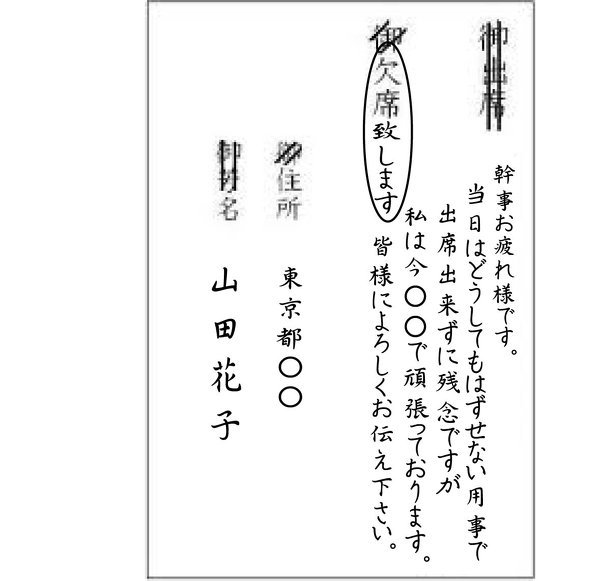 御出席
幹事お疲れ様です。
当日はどうしてもはずせない用事で
出席出来ずに残念ですが
私は今〇〇で頑張っております。
皆様によろしくお伝え下さい。
御欠席致します
御住所
東京都〇〇
御芳名
山田花子